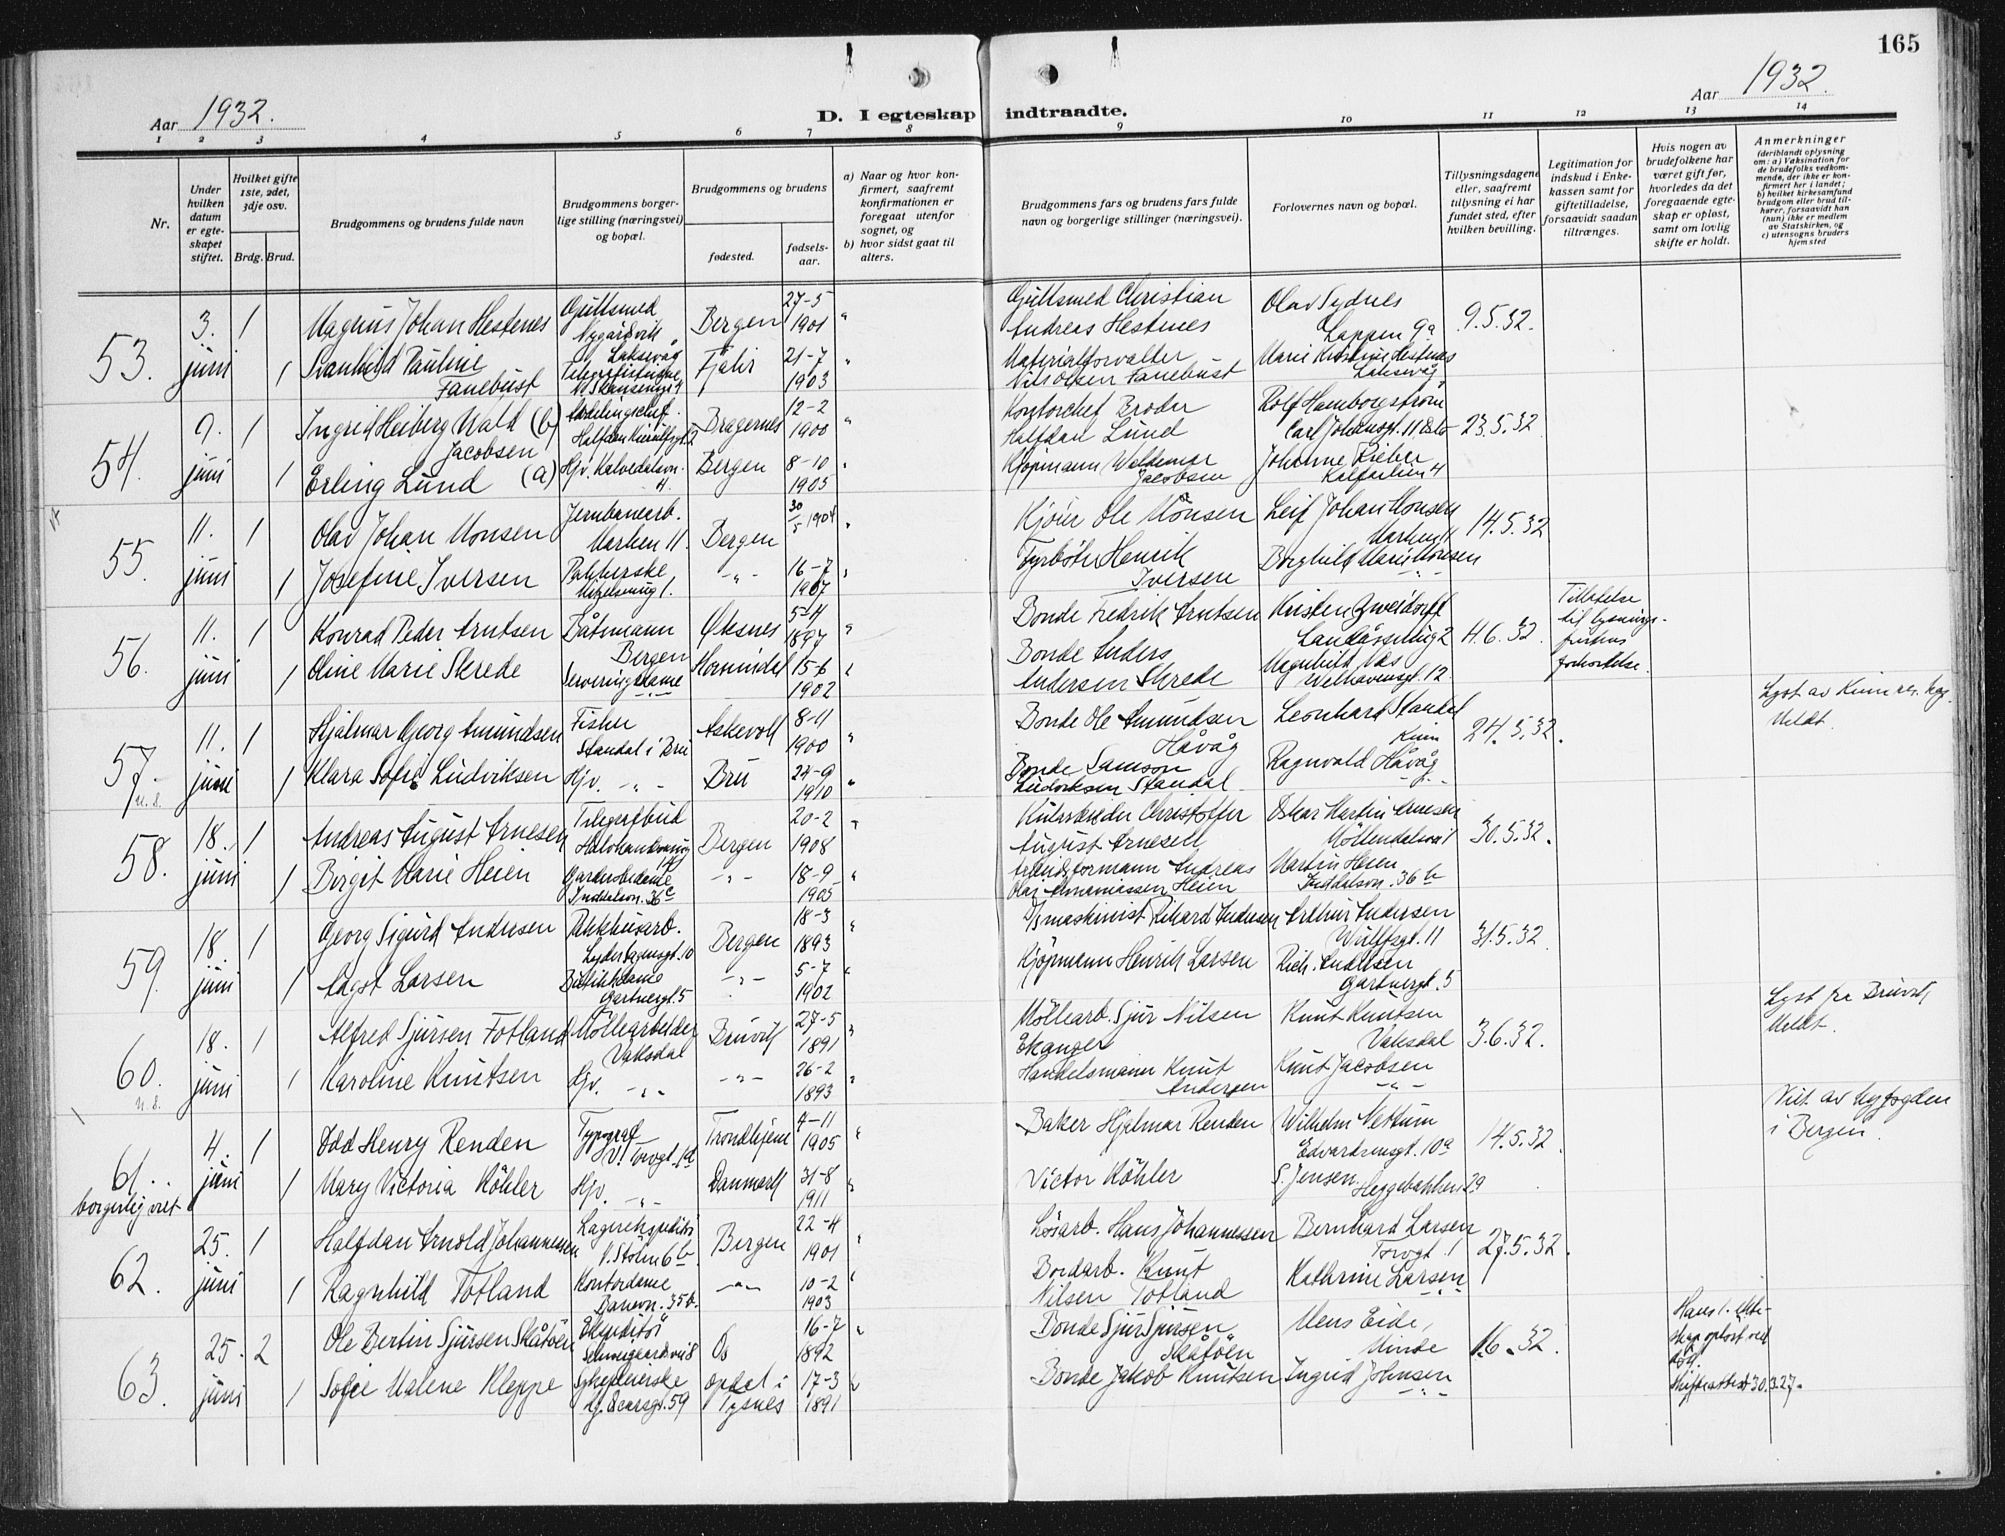 165
Aar 1932.
D. I egteskap indtraadte.
Aar 1932.
1 2 3 4 5 6 7 8 9 10 11 12 13 14
Nr.
Under hvilken datum er egteskapet stiftet.
Hvilket gifte 1ste, 2det, 3dje osv.
Brdg. Brud.
Brudgommens og brudens fulde navn
Brudgommens borgerlige stilling (næringsvei) og bopæl.
Brudgommens og brudens
fødested.
fødselsaar.
a) Naar og hvor konfirmert, saafremt konfirmationen er foregaat utenfor sognet, og
b) hvor sidst gaat til alters.
Brudgommens fars og brudens fars fulde navn og borgerlige stillinger (næringsvei).
Forlovernes navn og bopæl.
Tillysningsdagene eller, saafremt tillysning ei har fundet sted, efter hvilken bevilling.
Legitimation for indskud i Enkekassen samt for giftetilladelse, forsaavidt saadan tiltrænges.
Hvis nogen av brudefolkene har været gift før, hvorledes da det foregaaende egteskap er opløst, samt om lovlig skifte er holdt.
Anmerkninger
(deriblandt oplysning om: a) Vaksination for de brudefolks vedkommende, der ikke er konfirmert her i landet; b) hvilket kirkesamfund brudgom eller brud tilhører, forsaavidt han (hun) ikke er medlem av Statskirken, og c) utensogns bruders hjemsted
53. 3. juni 1 Magnus Johan Hestenes Gullsmed Nygårdsvik Laksevåg Bergen 27-5 1901 Gullsmed Christian Andreas Hestenes Olav Sydnes Lappen 9a 9.5.32.
1 Svanhild Pauline Fanebust Telegrafistinne Fjaler 21-7 1903 Materialforvalter Fanebust Marie Kristine Hestenes Laksevåg
54. 9. juni 1 Ingrid Heiberg Wald Jacobsen (b) Dragernes 12-2 1900 Kontorchef Broder Halfdan Lund Rolf Hamborgstrøm Carl Johansgt. 11 Oslo 23.5.32
1 Erling Lund (a) Hjv. Kalvedalsvn. 4. Bergen 8-10 1905 Kjøpmann Waldemar Jacobsen Johanne Rieber Kalfarlien 4
55. 11. juni 1 Olav Johan Monsen Jernbanearb. Marken 11. Bergen 30/5 1904 Kjører Ole Monsen Leif Johan Monsen Marken 11 14.5.32
1 Josefine Iversen Pakkerske -"- 16-7 1907 Fyrbøter Henrik Iversen Borghild Marie Monsen -"-
56. 11. juni 1 Konrad Peder Arntsen Båtsmann Bergen Øksnes 5-4 1897 Bonde Fredrik Arntsen Kristen Zweidorff 4.6.32. Tillatelse til lysningsfristens forkortelse.
1 Oline Marie Skrede Serveringsdame -"- Hornindal 15-6 1902 Bonde Anders Andersen Skrede Magnhild Næs Welhavensgt. 12
57. u.s. 11. juni 1 Hjalmar Georg Amundsen Fisker Standal i Bru Askevoll 8-11 1900 Bonde Ole Amundsen Håvåg Leonhard Standal Kinn 24.5.32. Lyst av Kinn res. kap. Meldt.
1 Klara Sofie Ludviksen Hjv. -"- Bru 24-9 1910 Bonde Samson Ludviksen Standal Ragnvald Håvåg -"-
58. 18. juni 1 Andreas August Arnesen Telegrafbud Bergen 20-2 1908 Christoffer August Arnesen Oskar Martin Arnesen Møllendalsvei 1 30.5.32.
1 Birgit Marie Heien Garderobedame Inndalsvn. 36c -"- 18-9 1905 Arbeidsformann Andreas Olai Ananiassen Heien Martin Heien Inndalsvn. 36b
59. 18. juni 1 Georg Sigurd Andersen Pakkhusarb. Lyder Sagensgt. 10 Bergen 18-3 1893 Maskinist Rikard Andersen Arthur Andersen Wulffsgt. 11 31.5.32
1 Aagot Larsen Butikkdame Gartnergt. 5 -"- 5-7 1902 Kjøpmann Henrik Larsen Rich. Andersen Gartnergt. 5
60. u.s. 18. juni 1 Alfred Sjursen Fotland Møllearbeider Vaksdal Bruvik 27-5 1891 Møllearb. Sjur Nilsen Ekanger Knut Knutsen Vaksdal 3.6.32. Lyst fra Bruvik, Meldt.
1 Karoline Knutsen Hjv. -"- -"- 26-2 1893 Handelsmann Knut Andersen Knut Jacobsen -"-
61. borgerlig viet 4. juni 1 Odd Henry Renden Typograf V. Torvgt. 1d Trondhjem 4-11 1905 Baker Hjalmar Renden Wilhelm Nettum Edvardsensgt. 10a 14.5.32 Viet av byfogden i Bergen.
1 Mary Victoria Köhler Hjv. -"- Danmark 31-8 1911 Victor Köhler S. Jensen Heggebakken 29
62. 25. juni 1 Halfdan Arnold Johannessen Lagerekspeditør V. Stølen 6b Bergen 22-4 1901 Løsarb. Hans Johannessen Bernhard Larsen Torvgt. 1 27.5.32.
1 Ragnhild Totland Kontordame Damsv. 35b. -"- 10-2 1903 Bordarb. Knut Nilsen Totland Kathrine Larsen -"-
63. 25. juni 2 Ole Bertin Sjursen Skåtøen Ekspeditør Schweigaardsvei 8 Os 16-7 1892 Bonde Sjur Sjursen Skåtöen Mons Eide, Minde 1.6.32. Hans 1. ekteskap opløst ved død. Skifteattest 30.3.27.
1 Sofie Malene Kleppe Sykepleierske 59 Opdal i Tysnes 17-3 1891 Bonde Jakob Knutsen Ingrid Johnsen -"-